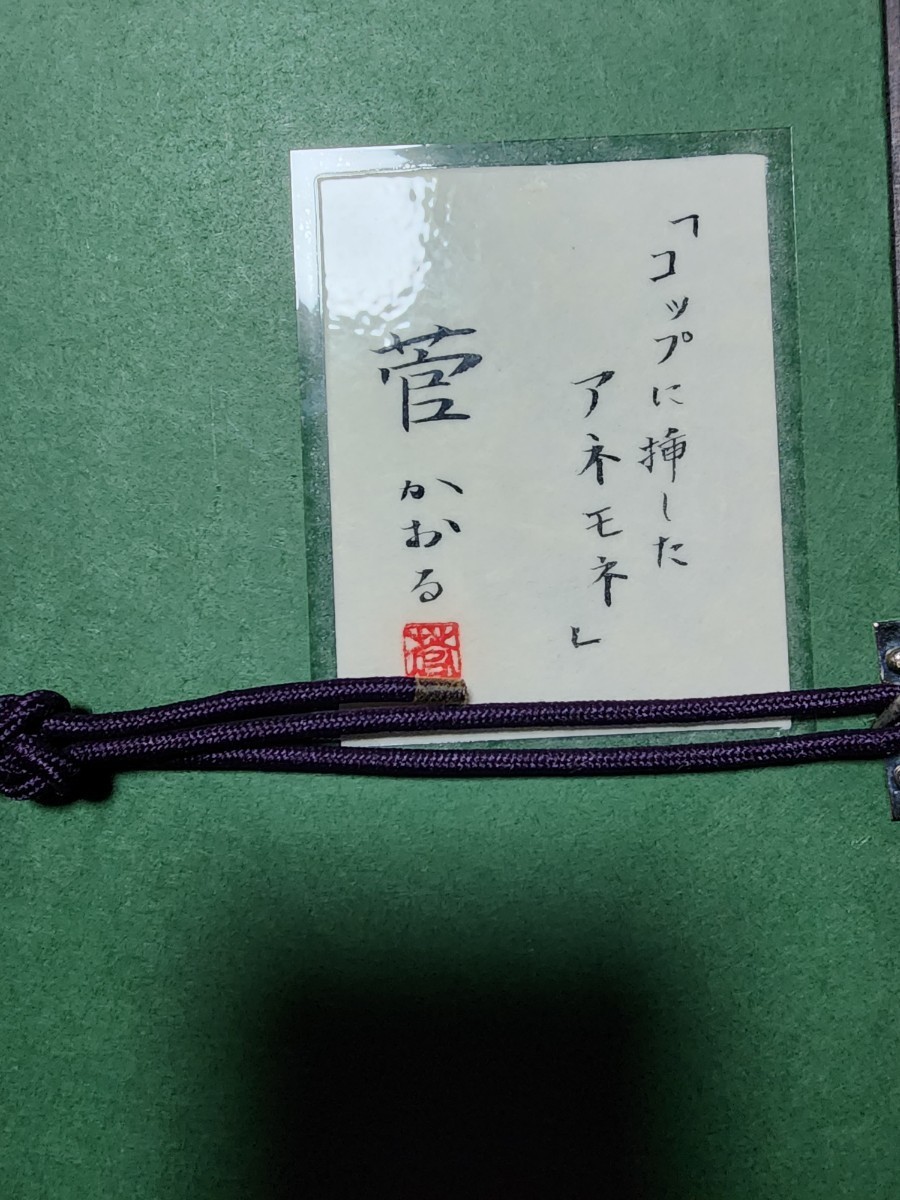 「コップに挿した
アネモネ」
菅 かおる
菅